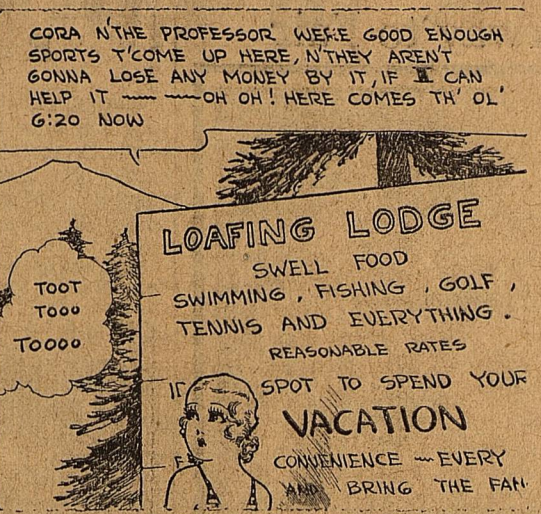 CORA N'THE PROFESSOR WERE GOOD ENOUGH
SPORTS T'COME UP HERE, N'THEY AREN'T
GONNA LOSE ANY MONEY BY IT, IF I CAN
HELP IT — — OH OH! HERE COMES TH' OL'
6:20 NOW
TOOT
TOOO
TOOOO
LOAFING LODGE
SWELL FOOD
SWIMMING, FISHING, GOLF,
TENNIS AND EVERYTHING.
REASONABLE RATES
SPOT TO SPEND YOUR
VACATION
CONVENIENCE — EVERY
AND BRING THE FAM